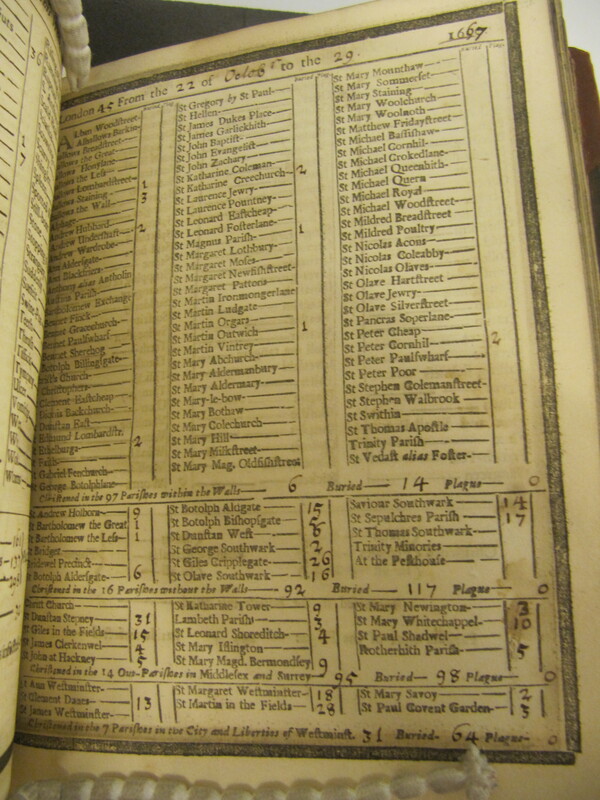 1667
London 45 From the 22 of Octobr to the 29.
Buried Plag.
Alban Woodstreet
Alhallows Barkin
Breadstreet
Great
Honylane
Less
Lombardstreet 1
Staining 3
the Wall
Hubbard 2
Undershaft
Wardrobe
Aldersgate
Blackfriers
alias Antholin
Parish
Exchange
Finck
Gracechurch
Paulswharf
Sherehog
Botolph Billingsgate
Church
Christophers
Clement Eastcheap
Dionis Backchurch
Dunstan East
Edmund Lombardstr.
Ethelburga 2
Faith
Gabriel Fenchurch
George Botolphlane
St Gregory by St Paul
St Hellen
St James Dukes Place
St James Garlickhith
St John Baptist
St John Evangelist
St John Zachary
St Katharine Coleman
St Katharine Creechurch 2
St Laurence Jewry
St Laurence Pountney
St Leonard Eastcheap
St Leonard Fosterlane
St Magnus Parish 1
St Margaret Lothbury
St Margaret Moses
St Margaret Newfishstreet
St Margaret Pattons
St Martin Ironmongerlane
St Martin Ludgate
St Martin Orgars
St Martin Outwich 1
St Martin Vintrey
St Mary Abchurch
St Mary Aldermanbury
St Mary Aldermary
St Mary-le-bow
St Mary Bothaw
St Mary Colechurch
St Mary Hill
St Mary Milkstreet
St Mary Mag. Oldfishstreet
Buried Plag.
St Mary Mounthaw
St Mary Sommerset
St Mary Staining
St Mary Woolchurch
St Mary Woolnoth
St Matthew Fridaystreet
St Michael Bassishaw
St Michael Cornhil
St Michael Crokedlane
St Michael Queenhith
St Michael Quern
St Michael Royal
St Michael Woodstreet
St Mildred Breadstreet
St Mildred Poultry
St Nicolas Acons
St Nicolas Coleabby
St Nicolas Olaves
St Olave Hartstreet
St Olave Jewry
St Olave Silverstreet
St Pancras Soperlane
St Peter Cheap
St Peter Cornhil 2
St Peter Paulswharf
St Peter Poor
St Stephen Colemanstreet
St Stephen Walbrook
St Swithin
St Thomas Apostle
Trinity Parish
St Vedast alias Foster
Christened in the 97 Parishes within the Walls 6 Buried 14 Plague 0
St Andrew Holborn 9
St Bartholomew the Great 1
St Bartholomew the Less 1
St Bridget
Bridewel Precinct
St Botolph Aldersgate 6
St Botolph Aldgate 15
St Botolph Bishopsgate 5
St Dunstan West 6
St George Southwark 2
St Giles Cripplegate 26
St Olave Southwark 16
Saviour Southwark 14
St Sepulchres Parish 17
St Thomas Southwark
Trinity Minories
At the Pesthouse
Christened in the 16 Parishes without the Walls 92 Buried 117 Plague 0
Christ Church
St Dunstan Stepney 31
St Giles in the Fields 15
St James Clerkenwel 4
St John at Hackney 5
St Katharine Tower 9
Lambeth Parish 3
St Leonard Shoreditch 4
St Mary Islington
St Mary Magd. Bermondsey 9
St Mary Newington 3
St Mary Whitechappel 10
St Paul Shadwel
Rotherhith Parish 5
Christened in the 14 Out-Parishes in Middlesex and Surrey 95 Buried 98 Plague 0
St Ann Westminster
St Clement Danes 13
St James Westminster
St Margaret Westminster 18
St Martin in the Fields 28
St Mary Savoy 2
St Paul Covent Garden 3
Christened in the 7 Parishes in the City and Liberties of Westminst. 31 Buried 64 Plague 0